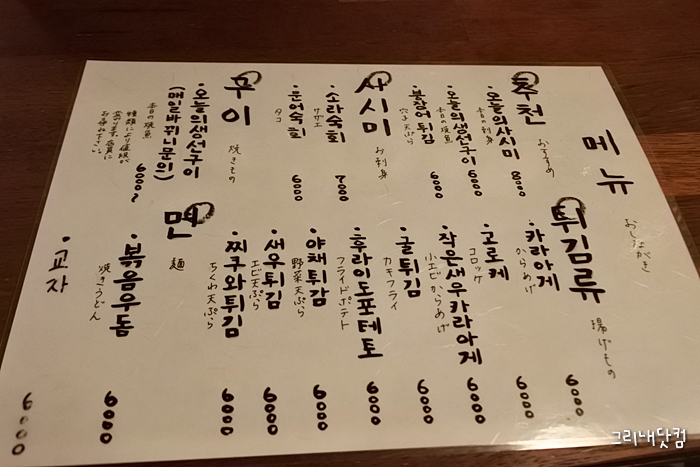 메뉴
おしながき
추천
おすすめ
·오늘의사시미 8000
本日の刺身
·오늘의생선구이 6000
本日の焼魚
·붕장어튀김 6000
穴子天ぷら
사시미
お刺身
·소라숙회 7000
サザエ
·문어숙회 6000
タコ
구이
焼きもの
·오늘의생선구이
(매일바뀌니문의)
6000~
本日の焼魚
種類により値段が
変わります。店員に
お尋ね下さい。
튀김류
揚げもの
·카라아게 6000
からあげ
·고로케 6000
コロッケ
·작은새우카라아게 6000
小エビからあげ
·굴튀김 6000
カキフライ
·후라이도포테토 6000
フライドポテト
·야채튀김 6000
野菜天ぷら
·새우튀김 6000
エビ天ぷら
·찌쿠와튀김 6000
ちくわ天ぷら
면
麺
·볶음우동 6000
焼うどん
·교자 6000
6000
그리내닷컴